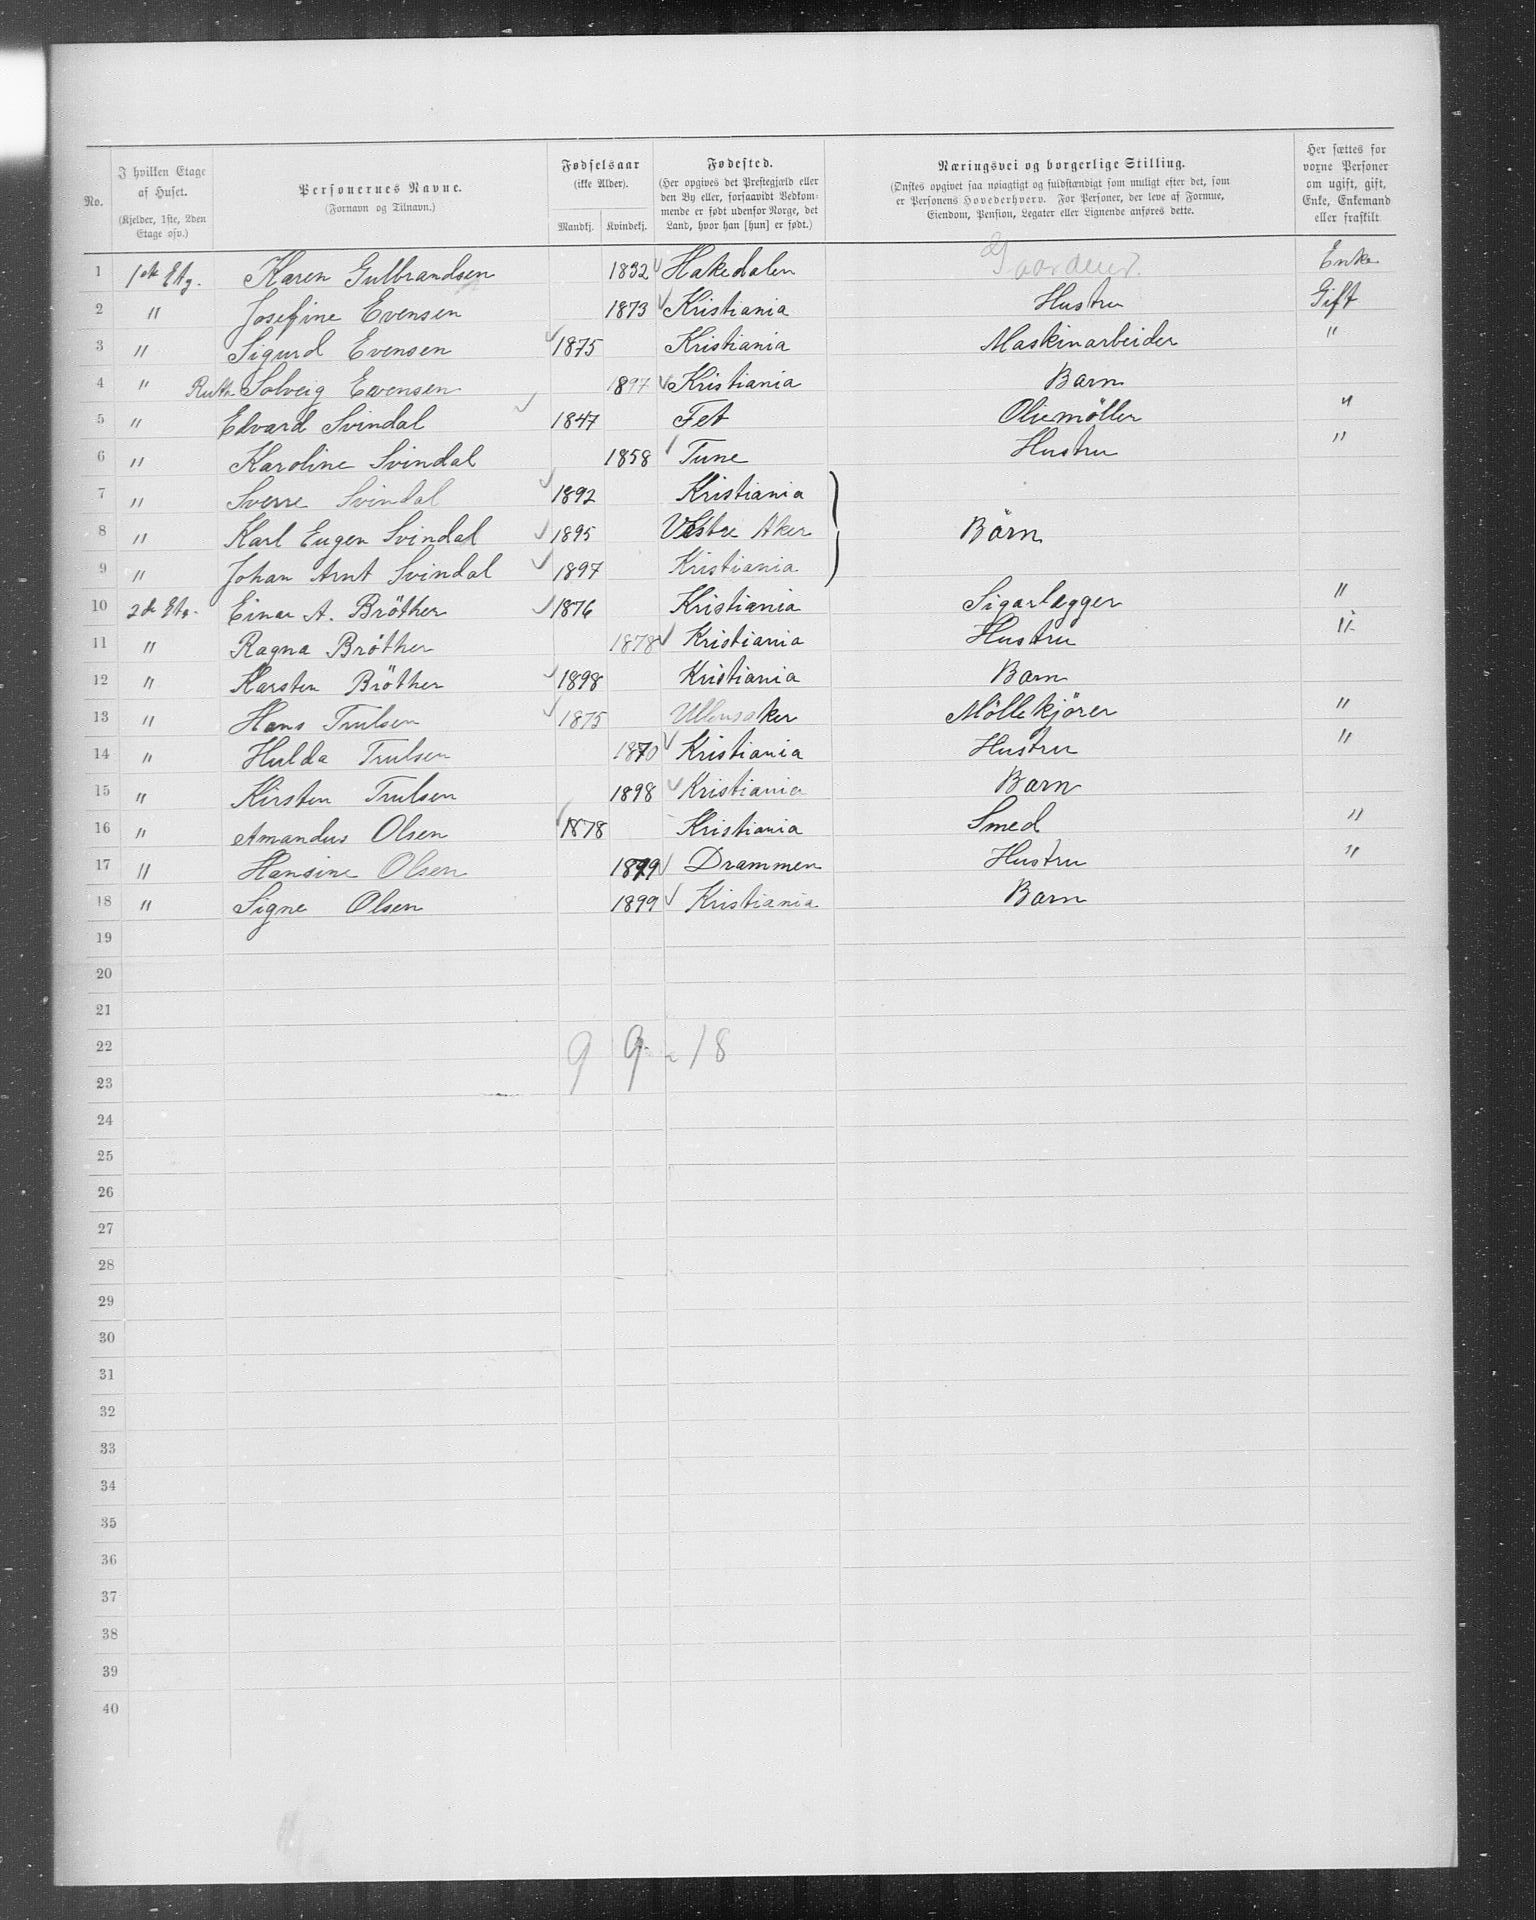 No.
I hvilken Etage af Huset. (Kjelder, 1ste, 2den Etage osv.)
Personernes Navne. (Fornavn og Tilnavn.)
Fødselsaar (ikke Alder). Mandkj. Kvindekj.
Fødested. (Her opgives det Prestegjæld eller den By eller, forsaavidt Vedkommende er født udenfor Norge, det Land, hvor han [hun] er født.)
Næringsvei og borgerlige Stilling. (Ønskes opgivet saa nøiagtigt og fuldstændigt som muligt efter det, som er Personens Hovederhverv. For Personer, der leve af Formue, Eiendom, Pension, Legater eller Lignende anføres dette.
Her sættes for vorne Personer om ugift, gift, Enke, Enkemand eller fraskilt
1 1ste Etg. Karen Gulbrandsen 1832 Hakedalen Enke
2 " Josefine Evensen 1873 Kristiania Hustru Gift
3 " Sigurd Evensen 1875 Kristiania Maskinarbeider "
4 " Ruth Solveig Evensen 1897 Kristiania Barn
5 " Edvard Svindal 1847 Fet Oliemöller "
6 " Karoline Svindal 1858 Tune Hustru "
7 " Sverre Svindal 1892 Kristiania
8 " Karl Eugen Svindal 1895 Vestre Aker Börn
9 " Johan Arnt Svindal 1897 Kristiania
10 2de Etg. Einar A. Bröther 1876 Kristiania Sigarlægger "
11 " Ragna Bröther 1878 Kristiania Hustru "
12 " Karsten Bröther 1898 Kristiania Barn
13 " Hans Trulsen 1875 Ullensaker Möllekjörer "
14 " Hulda Trulsen 1870 Kristiania Hustru "
15 " Kirsten Trulsen 1898 Kristiania Barn
16 " Amandus Olsen 1878 Kristiania Smed "
17 " Hansine Olsen 1879 Drammen Hustru "
18 " Signe Olsen 1899 Kristiania Barn
19
20
21
22 9 9 - 18
23
24
25
26
27
28
29
30
31
32
33
34
35
36
37
38
39
40